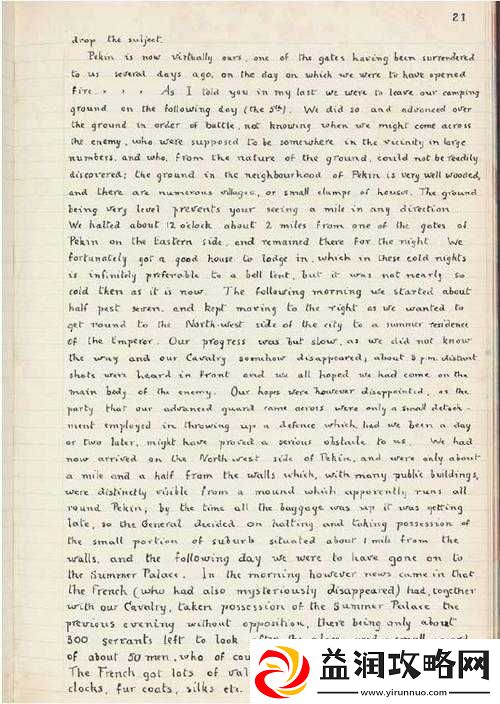 21
drop the subject.
Pekin is now virtually ours, one of the gates having been surrendered
to us several days ago, on the day on which we were to have opened
fire. . . . As I told you in my last we were to leave our camping
ground on the following day (the 5th). We did so and advanced over
the ground in order of battle, not knowing when we might come across
the enemy, who were supposed to be somewhere in the vicinity in large
numbers, and who, from the nature of the ground, could not be readily
discovered; the ground in the neighbourhood of Pekin is very well wooded,
and there are numerous villages, or small clumps of houses. The ground
being very level prevents your seeing a mile in any direction.
We halted about 12 o'clock about 2 miles from one of the gates of
Pekin on the Eastern side, and remained there for the night. We
fortunately got a good house to lodge in, which in these cold nights
is infinitely preferable to a bell tent, but it was not nearly so
cold then as it is now. The following morning we started about
half past seven, and kept moving to the right as we wanted to
get round to the North-West side of the city to a summer residence
of the Emperor. Our progress was but slow, as we did not know
the way and our Cavalry somehow disappeared; about 3 p.m. distant
shots were heard in front and we all hoped we had come on the
main body of the enemy. Our hopes were however disappointed, as the
party that our advanced guard came across were only a small detach-
ment employed in throwing up a defence which had we been a day
or two later, might have proved a serious obstacle to us. We had
now arrived on the North West side of Pekin, and were only about
a mile and a half from the walls which, with many public buildings,
were distinctly visible from a mound which apparently runs all
round Pekin; by the time all the baggage was up it was getting
late, so the General decided on halting and taking possession of
the small portion of suburb situated about 1 mile from the
walls, and the following day we were to have gone on to
the Summer Palace. In the morning however news came in that
the French (who had also mysteriously disappeared) had, together
with our Cavalry, taken possession of the Summer Palace the
previous evening without opposition, there being only about
300 servants left to look after the place, and a small guard
of about 50 men, who of cou
The French got lots of val
clocks, fur coats, silks etc.
益润攻略网
www.yirunnuo.com